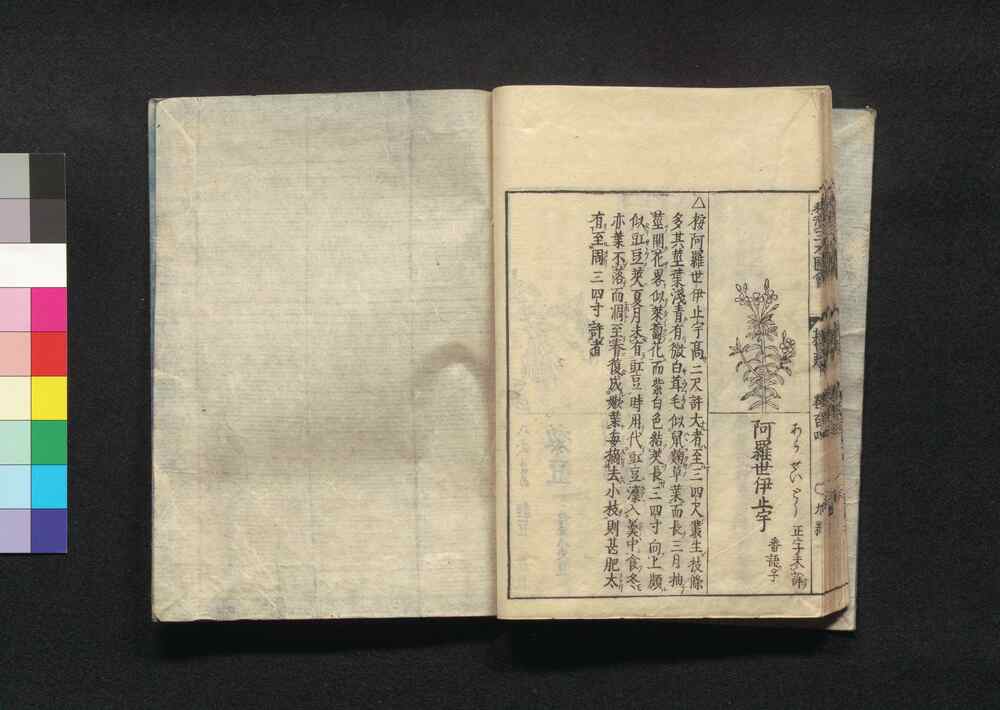 阿羅世伊止宇
あらせいとう
正字未詳
番語乎
△按阿羅世伊止宇髙二尺許大者至三四尺叢生枝條
多其莖葉淺青有微白茸毛似鼠麴草葉而長三月抽
莖開花畧似萊菔花而紫白色結莢長三四寸向上頗
似豇豆莢夏月未有豇豆時用代豇豆漂入羹中食冬
亦葉不落而凋至春復成嫩葉毎摘去小枝則甚肥太
有至周三四寸許者